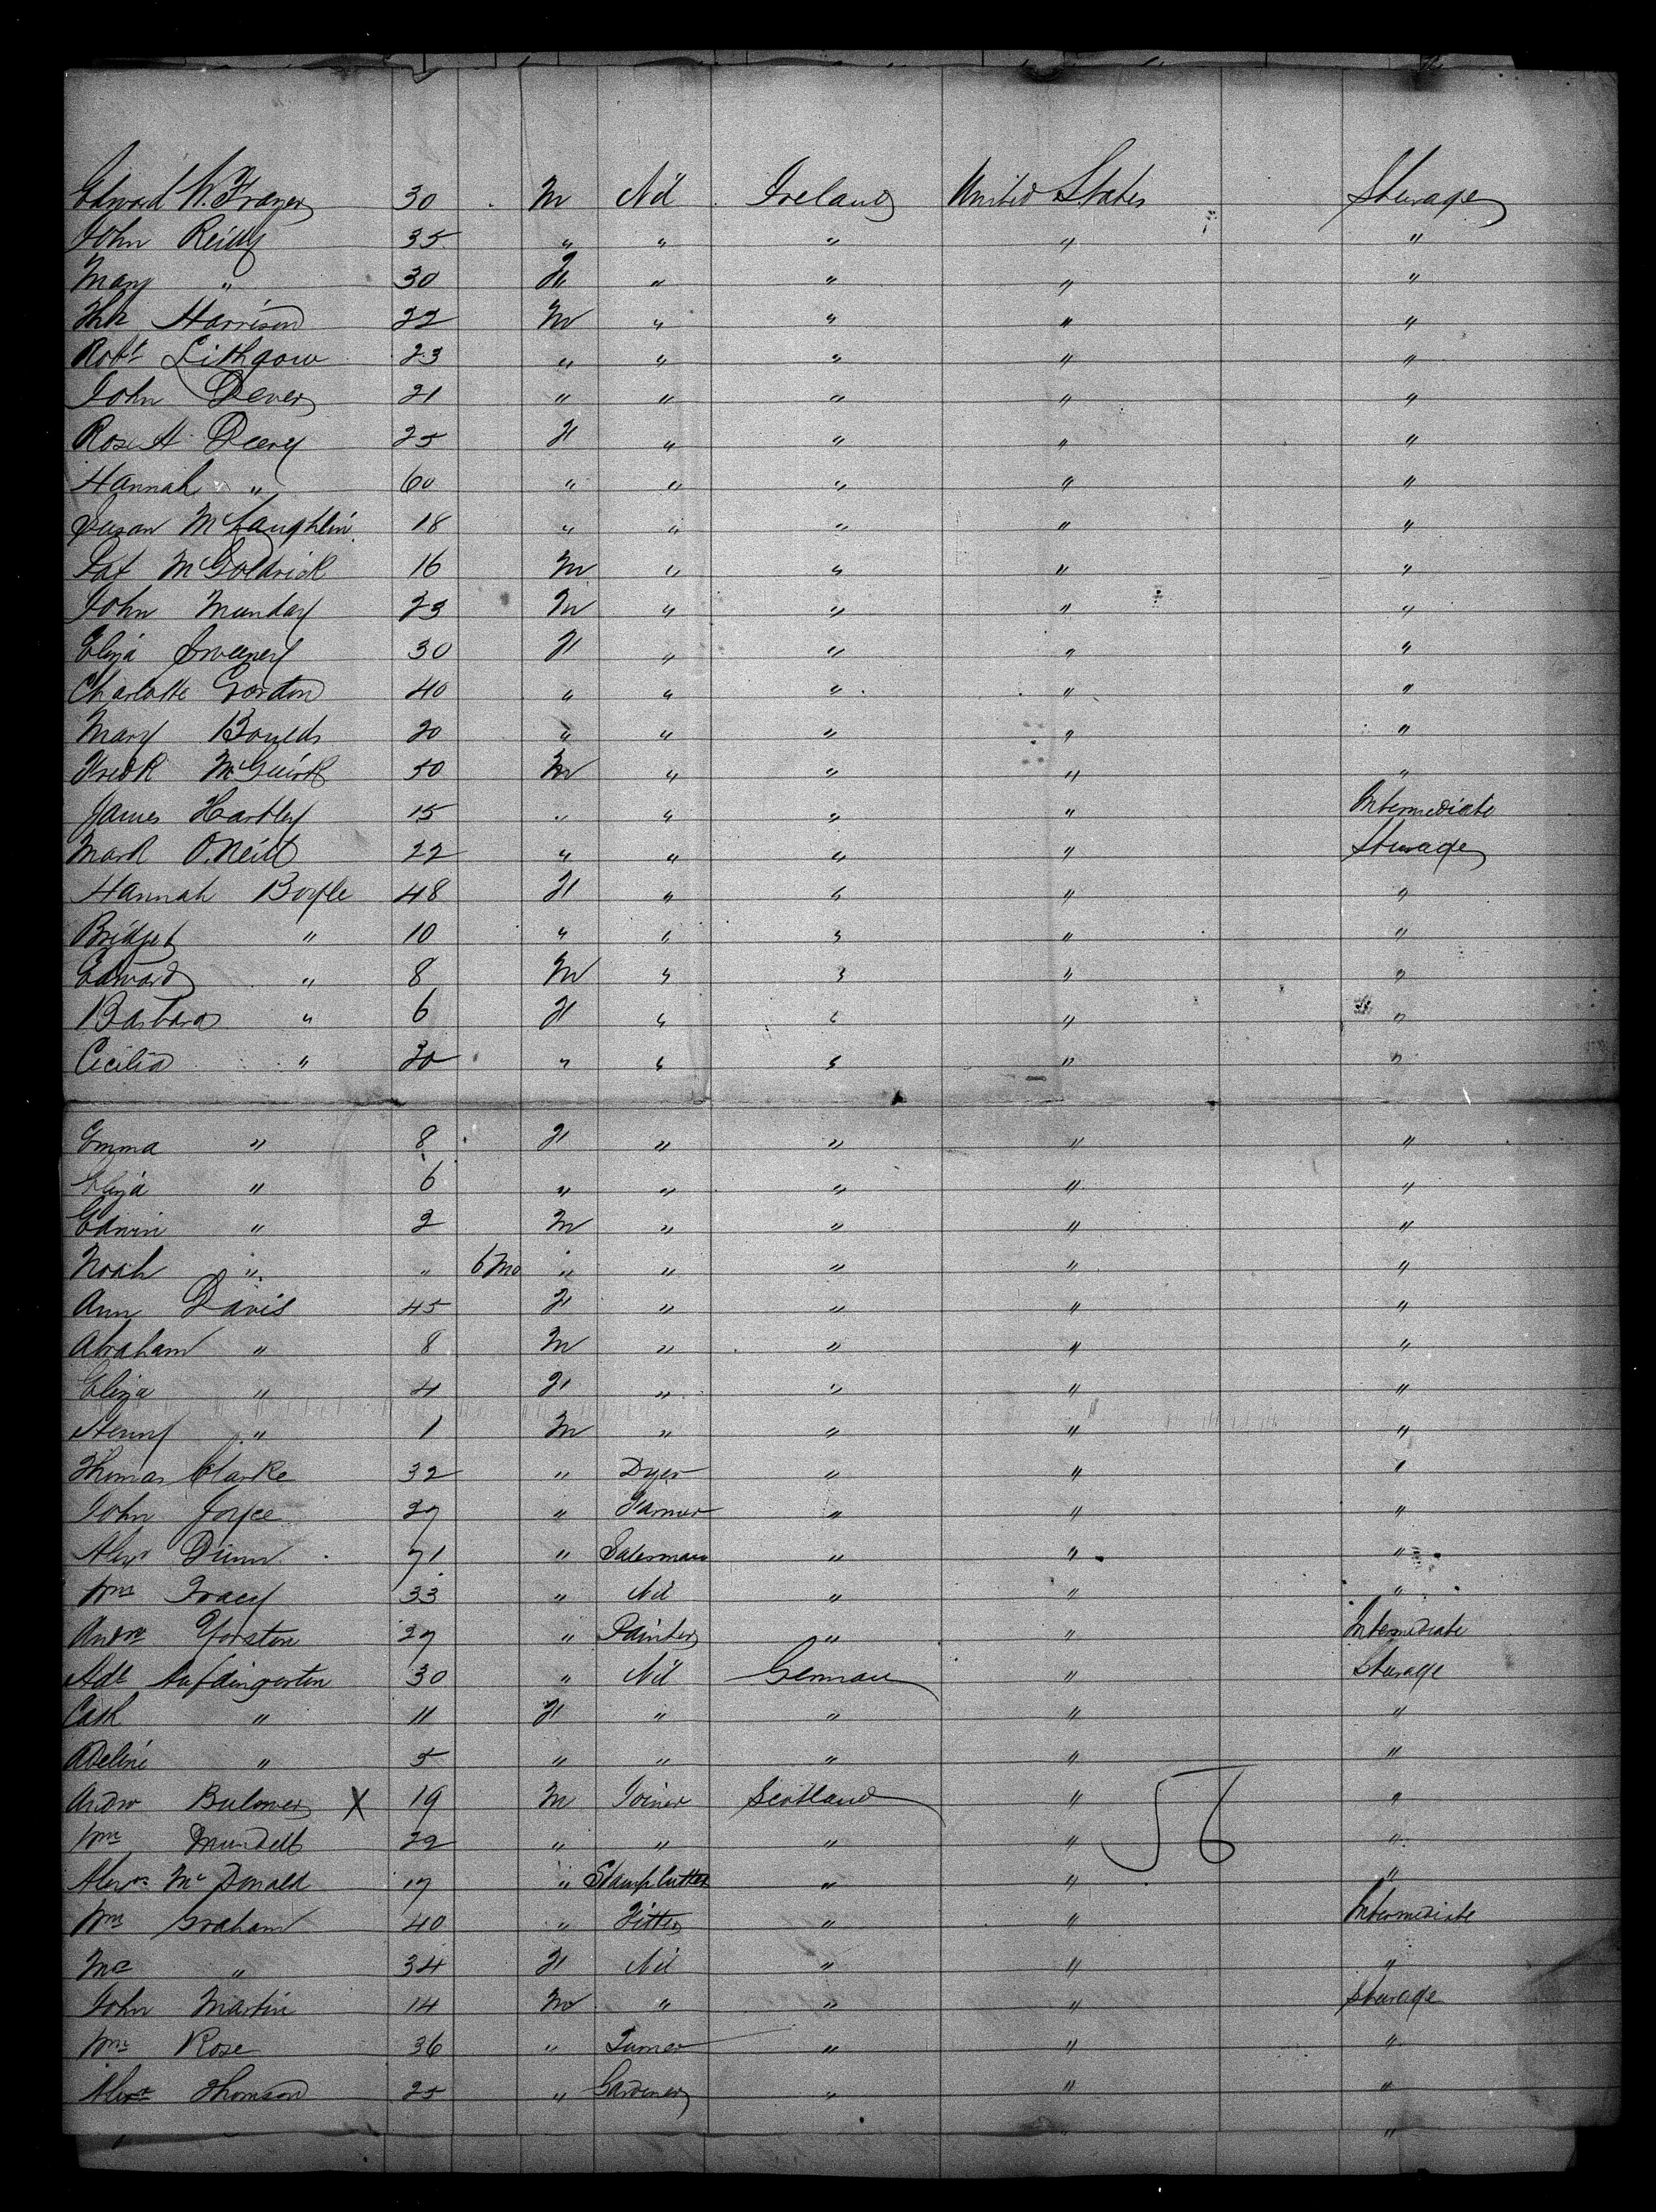 Edward W. Frazer 30 M Nil Ireland United States Steerage
John Reilly 35 " " " " "
Mary " 30 F " " " "
Harrison 22 M " " " "
Robt Lithgow 23 " " " " "
John Dever 21 " " " " "
Rose A Deery 25 F " " " "
Hannah " 60 " " " " "
Susan McLaughlin 18 " " " " "
Pat McGoldrick 16 M " " " "
John Munday 23 M " " " "
Eliza Sweeney 30 F " " " "
Charlotte Gordon 40 " " " " "
Mary Boulds 20 " " " " "
Fredk McGuirk 50 M " " " "
James Hartley 15 " " " " Intermediate
Mark O'Neill 22 " " " " Steerage
Hannah Boyle 48 F " " " "
Bridget " 10 " " " " "
Edward " 8 M " " " "
Barbara " 6 F " " " "
Cecilia " 30 " " " " "
Emma " 8 F " " " "
Eliza " 6 " " " " "
Edwin " 2 M " " " "
Noah " " 6 Mo " " " " "
Ann Davis 45 F " " " "
Abraham " 8 M " " " "
Eliza " 4 F " " " "
Henry " 1 M " " " "
Thomas Clarke 32 " Dyer " " "
John Joyce 27 " Farmer " " "
Alexr Dunn 71 " Salesman " " "
Wm Tracy 33 " Nil " " "
Andrw Yorston 27 " Painter " " Intermediate
30 " Nil German " Steerage
Cath " 11 F " " " "
Adeline " 5 " " " " "
Andw Bulower X 19 M Joiner Scotland " "
Wm Mundell 22 " " " " "
56
Alexr McDonald 17 " Stamp Cutter " " "
Wm Graham 40 " Fitter " " Intermediate
Mrs " 34 F Nil " " "
John Martin 14 M " " " Steerage
Wm Rose 36 " Turner " " "
Alexr Thomson 25 " Gardener " " "
" "